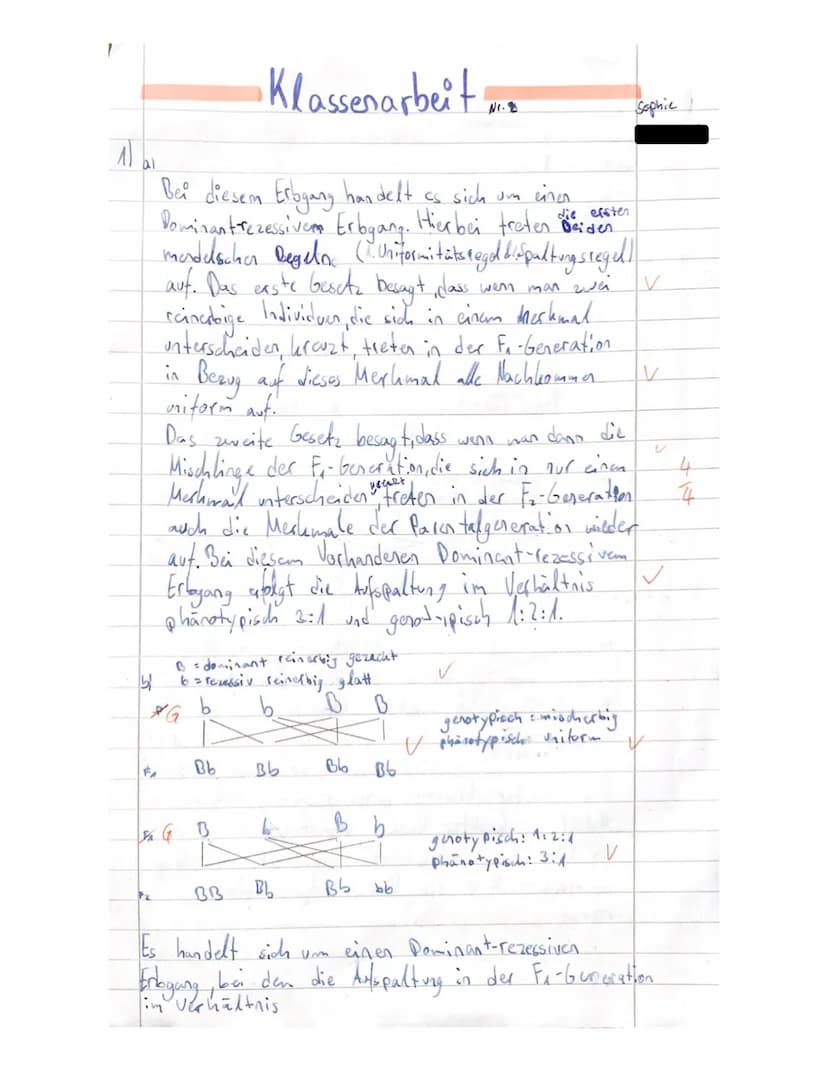 Klassenarbeit Nr. 2
Sophie
1) a)
Bei diesem Erbgang handelt es sich um einen
Dominantrezessivem Erbgang. Hierbei treten die ersten Beiden
mendelschen Regeln (1. Uniformitätsregel & Spaltungsregel)
auf. Das erste Gesetz besagt, dass wenn man zwei
reinerbige Individuen, die sich in einem Merkmal
unterscheiden, kreuzt, treten in der F1-Generation
in Bezug auf dieses Merkmal alle Nachkommen
uniform auf.
Das zweite Gesetz besagt, dass wenn man dann die
Mischlinge der F1-Generation, die sich in nur einen
Merkmal unterscheiden kreuzt, treten in der F2-Generation
auch die Merkmale der Parentalgeneration wieder
auf. Bei diesem Vorhandenen Dominant-rezessivem
Erbgang erfolgt die Aufspaltung im Verhältnis
phänotypisch 3:1 und genotypisch 1:2:1.
4/4
B = dominant reinerbig gezackt
b) b = rezessiv reinerbig glatt
G b b B B
genotypisch: mischerbig
phänotypisch: uniform
F1 Bb Bb Bb Bb
G B b B b
genotypisch: 1:2:1
phänotypisch: 3:1
F2 BB Bb Bb bb
Es handelt sich um einen Dominant-rezessiven
Erbgang, bei dem die Aufspaltung in der F1-Generation
im Verhältnis